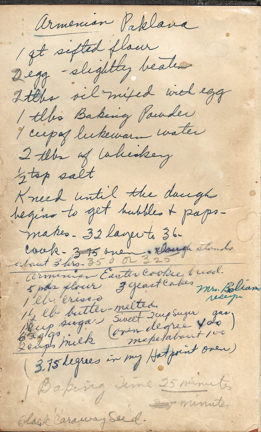 Armenian Paklava
1 qt sifted flour
2 egg - slightly beaten
2 tlbs oil mixed with egg
1 tlbs Baking Powder
1 cup of lukewarm water
2 tlbs of Whiskey
½ tsp salt
Knead until the dough
begins to get bubbles & pops -
makes - 32 layer to 36 -
Cook - 375 oven - dough stands
about 3 hrs - 350 or 325
Armenian Easter Cookie bread.
5 lbs flour 3 yeast cakes
1 lb Crisco Mrs.
1 lb butter melted
cup sugar Sweet
6 eggs (oven degree 400)
2 cups milk makes about 100
(375 degrees in my Hotpoint oven)
Baking time 25 minutes
minute
black Caraway Seed.